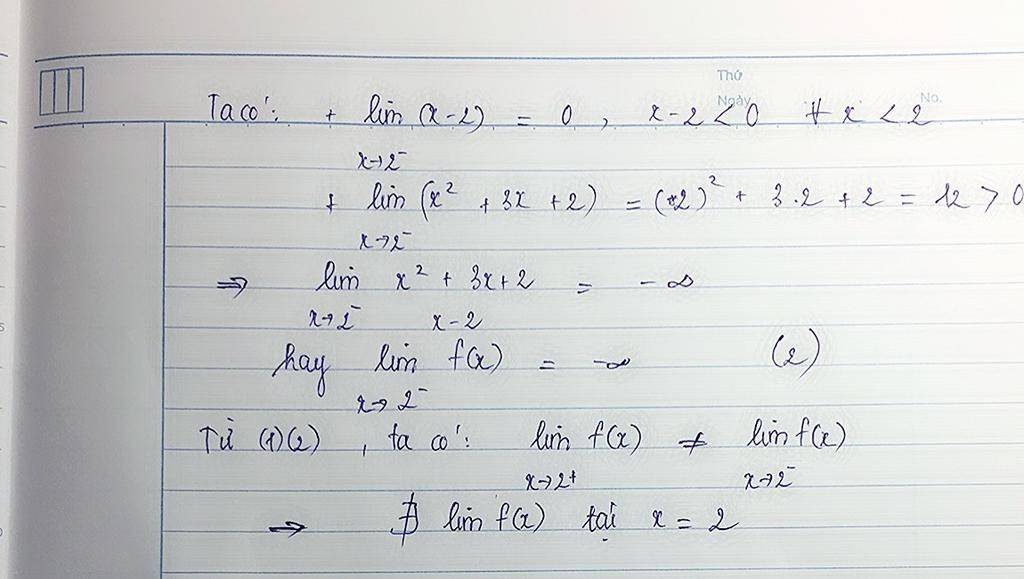 Thứ
Ngày No.
Ta có: + lim (x-2) = 0, x-2 < 0 ∀ x < 2
x→2⁻
+ lim (x² + 3x + 2) = (2)² + 3.2 + 2 = 12 > 0
x→2⁻
⇒ lim x² + 3x + 2 = -∞
x→2⁻ x-2
hay lim f(x) = -∞ (2)
x→2⁻
Từ (1)(2), ta có: lim f(x) ≠ lim f(x)
x→2+ x→2⁻
⇒ ∄ lim f(x) tại x = 2